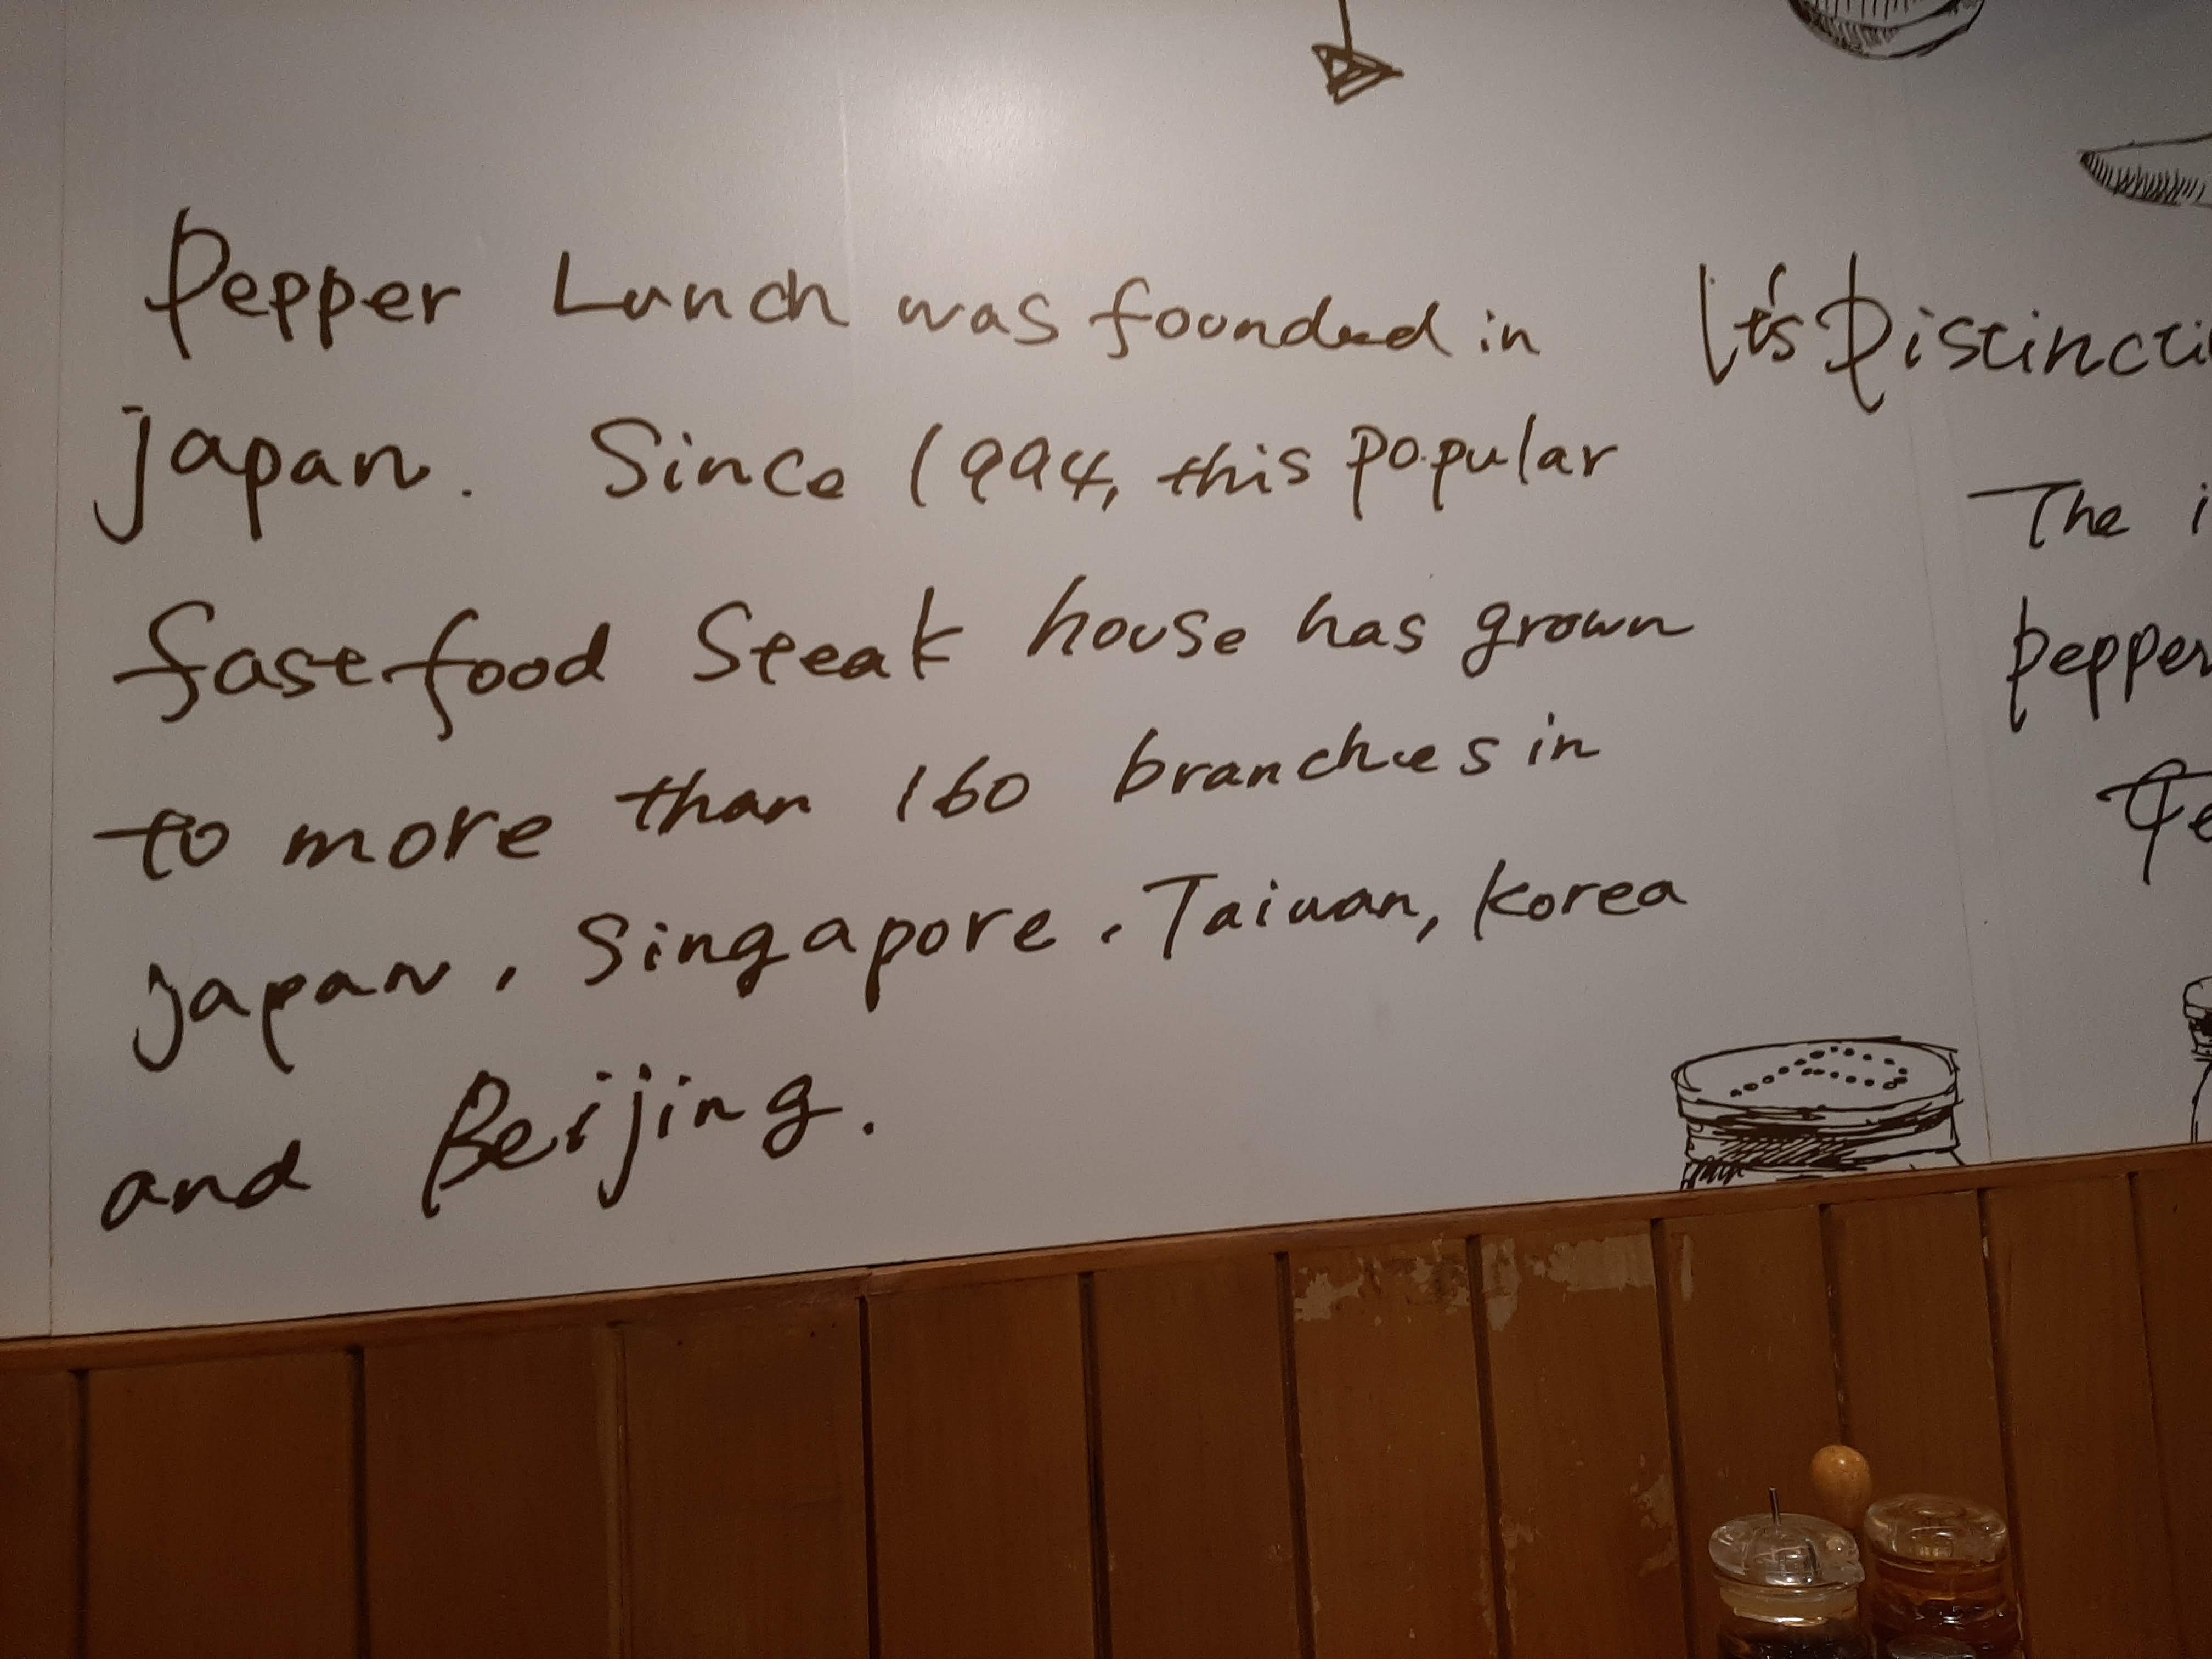 Pepper Lunch was founded in
Japan. Since 1994, this popular
fastfood Steak house has grown
to more than 160 branches in
Japan, Singapore, Taiwan, Korea
and Beijing.
It's
The
pepper